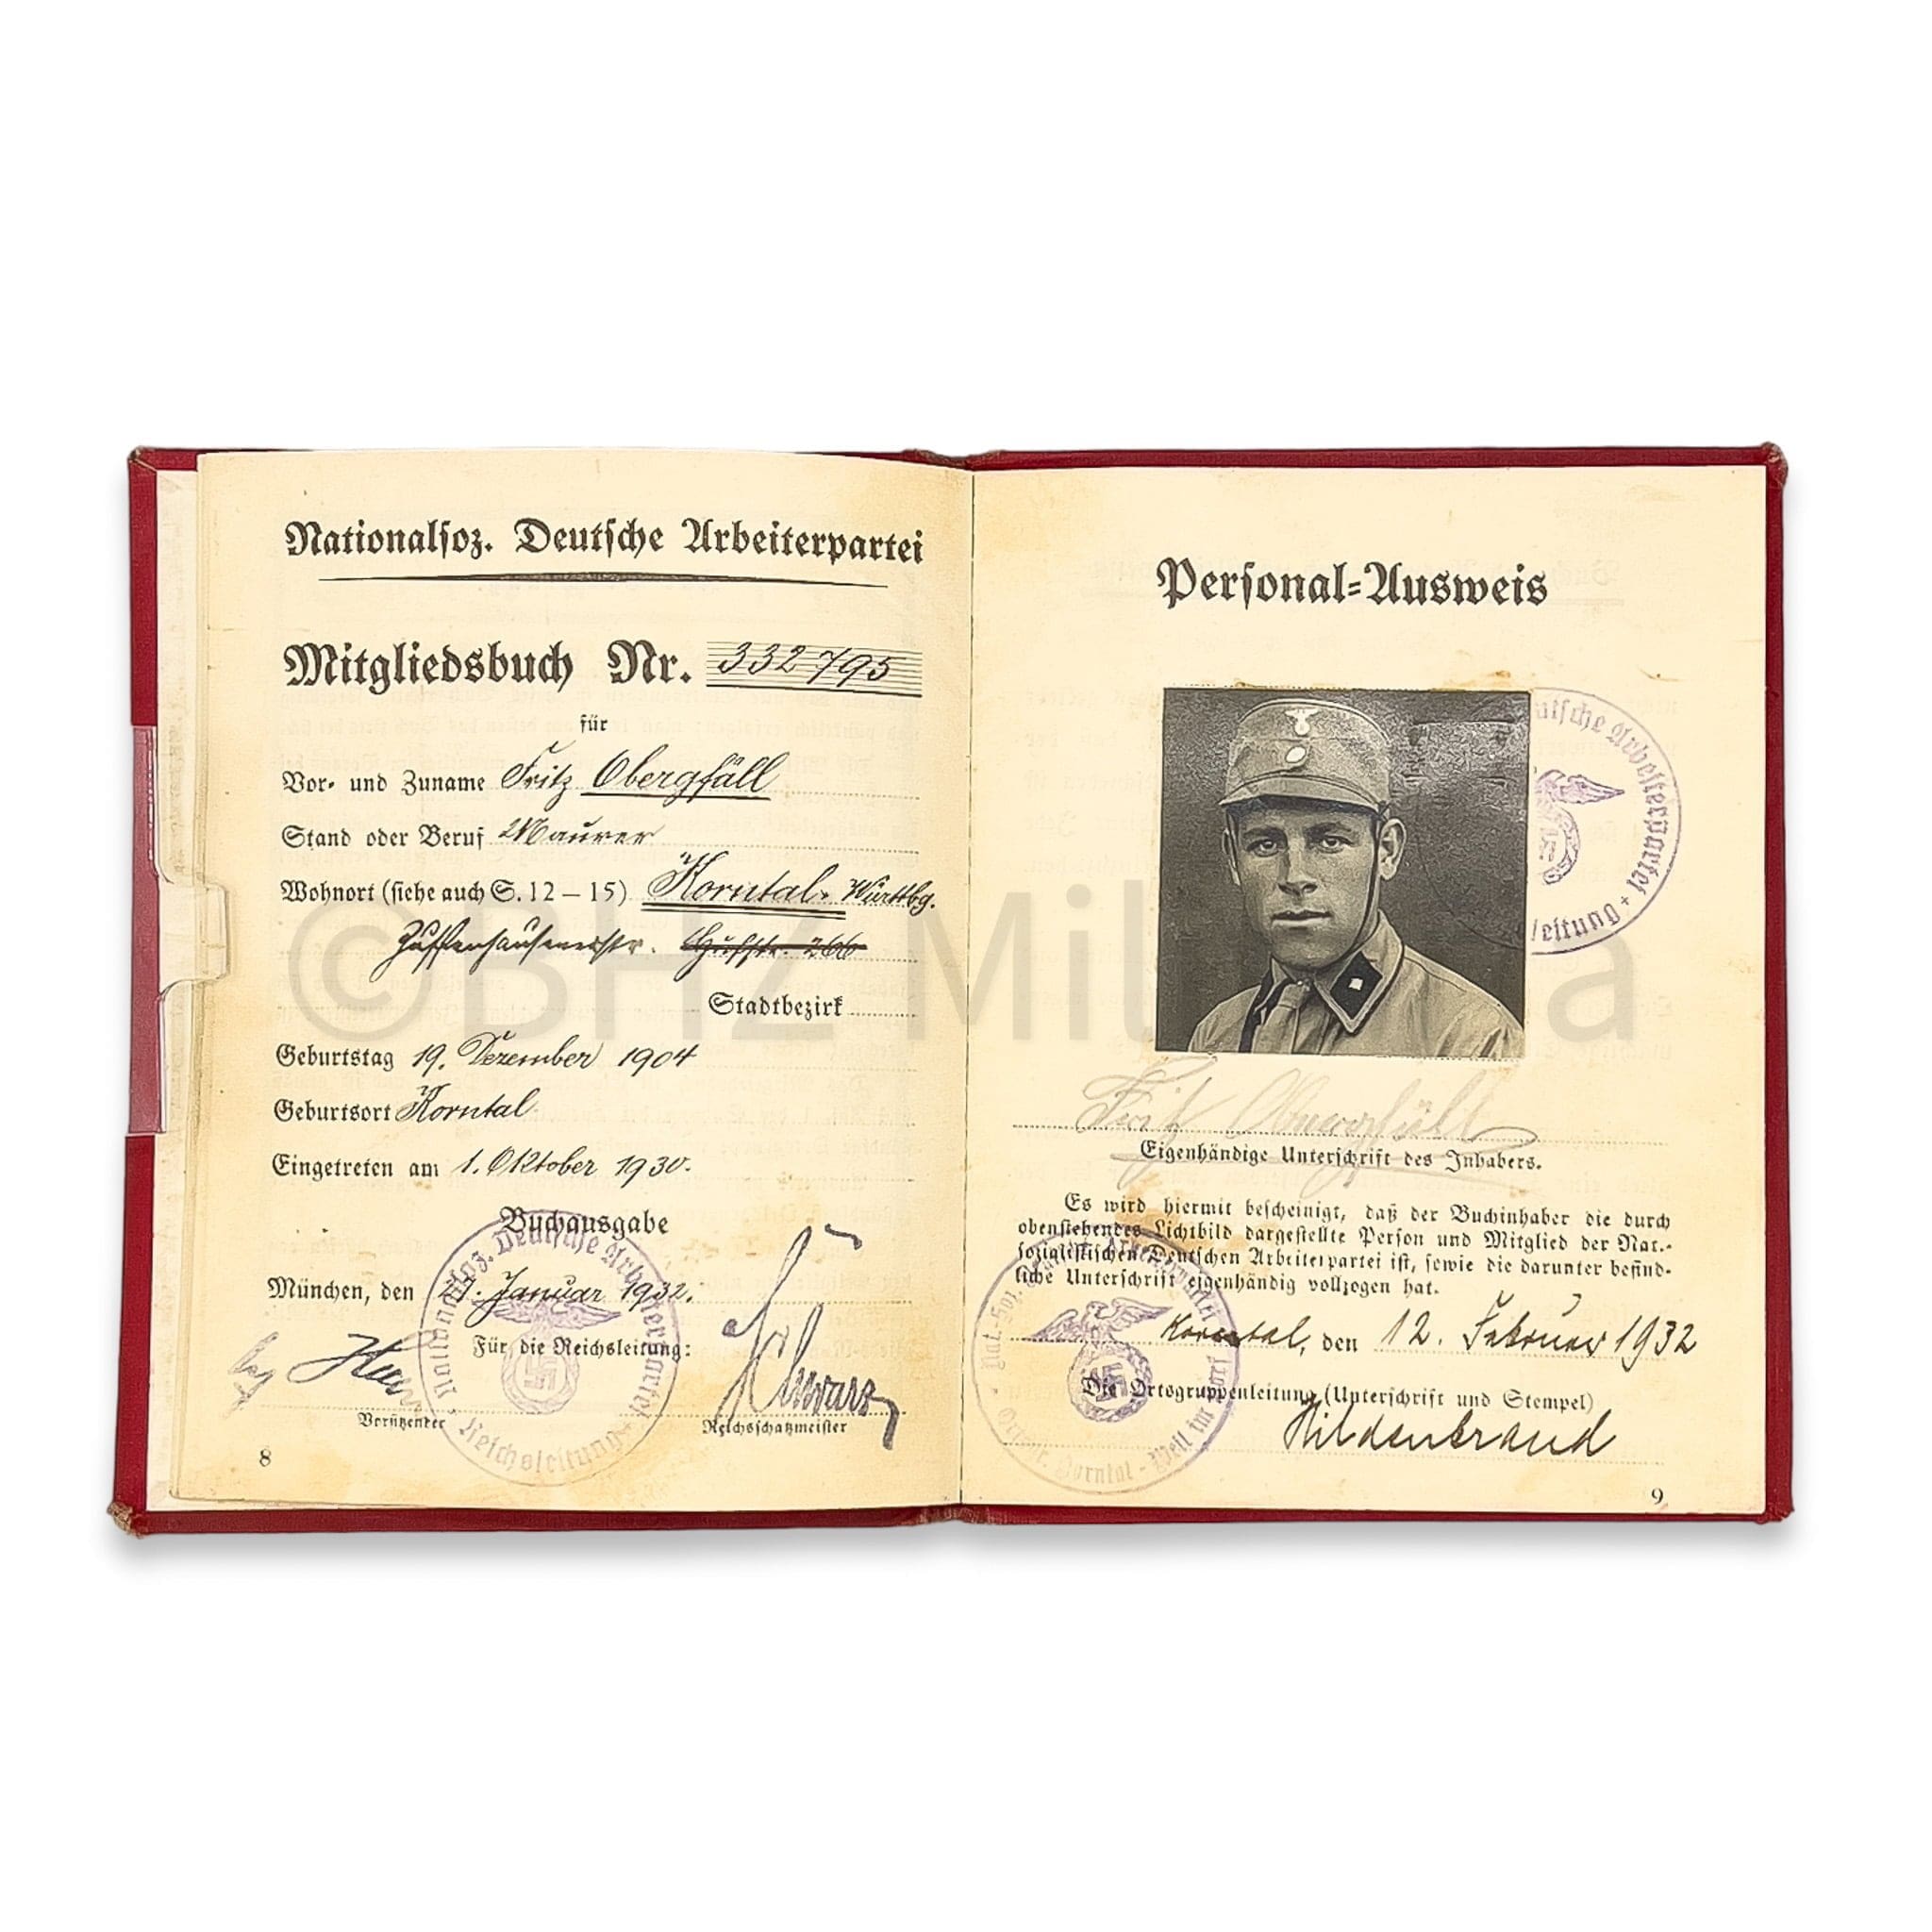 Nationalsoz. Deutsche Arbeiterpartei
Mitgliedsbuch Nr. 332795
für
Vor- und Zuname Fritz Obergfäll
Stand oder Beruf Maurer
Wohnort (siehe auch S. 12 – 15) Korntal. Württbg.
Zuffenhausenerstr.
Stadtbezirk
Geburtstag 19. Dezember 1904
Geburtsort Korntal
Eingetreten am 1. Oktober 1930.
Buchausgabe
München, den Januar 1932.
Für die Reichsleitung:
Schwarz
Vorsitzender
Reichsschatzmeister
Nationalsoz. Deutsche Arbeiterpartei
Reichsleitung
8
Personal-Ausweis
Deutsche Arbeiterpartei
leitung
Fritz Obergfäll
Eigenhändige Unterschrift des Inhabers.
Es wird hiermit bescheinigt, daß der Buchinhaber die durch
obenstehendes Lichtbild dargestellte Person und Mitglied der Nat.-
sozialistischen Deutschen Arbeiterpartei ist, sowie die darunter befind-
liche Unterschrift eigenhändig vollzogen hat.
Korntal, den 12. Februar 1932
Die Ortsgruppenleitung (Unterschrift und Stempel)
Hildenbrand
Korntal - Weil im Dorf
9
©BHZ Militaria